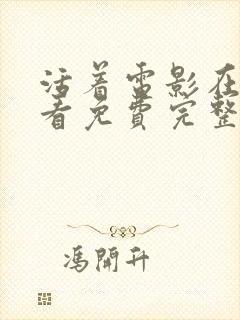 活着雷影在
看免費完整
馮開升